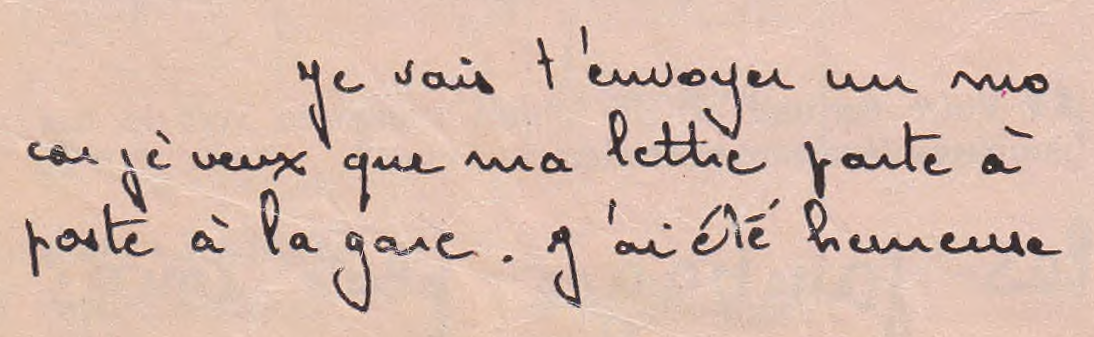 Je vais t'envoyer un mo
car je veux que ma lettre parte à
poste à la gare. J'ai été heureuse